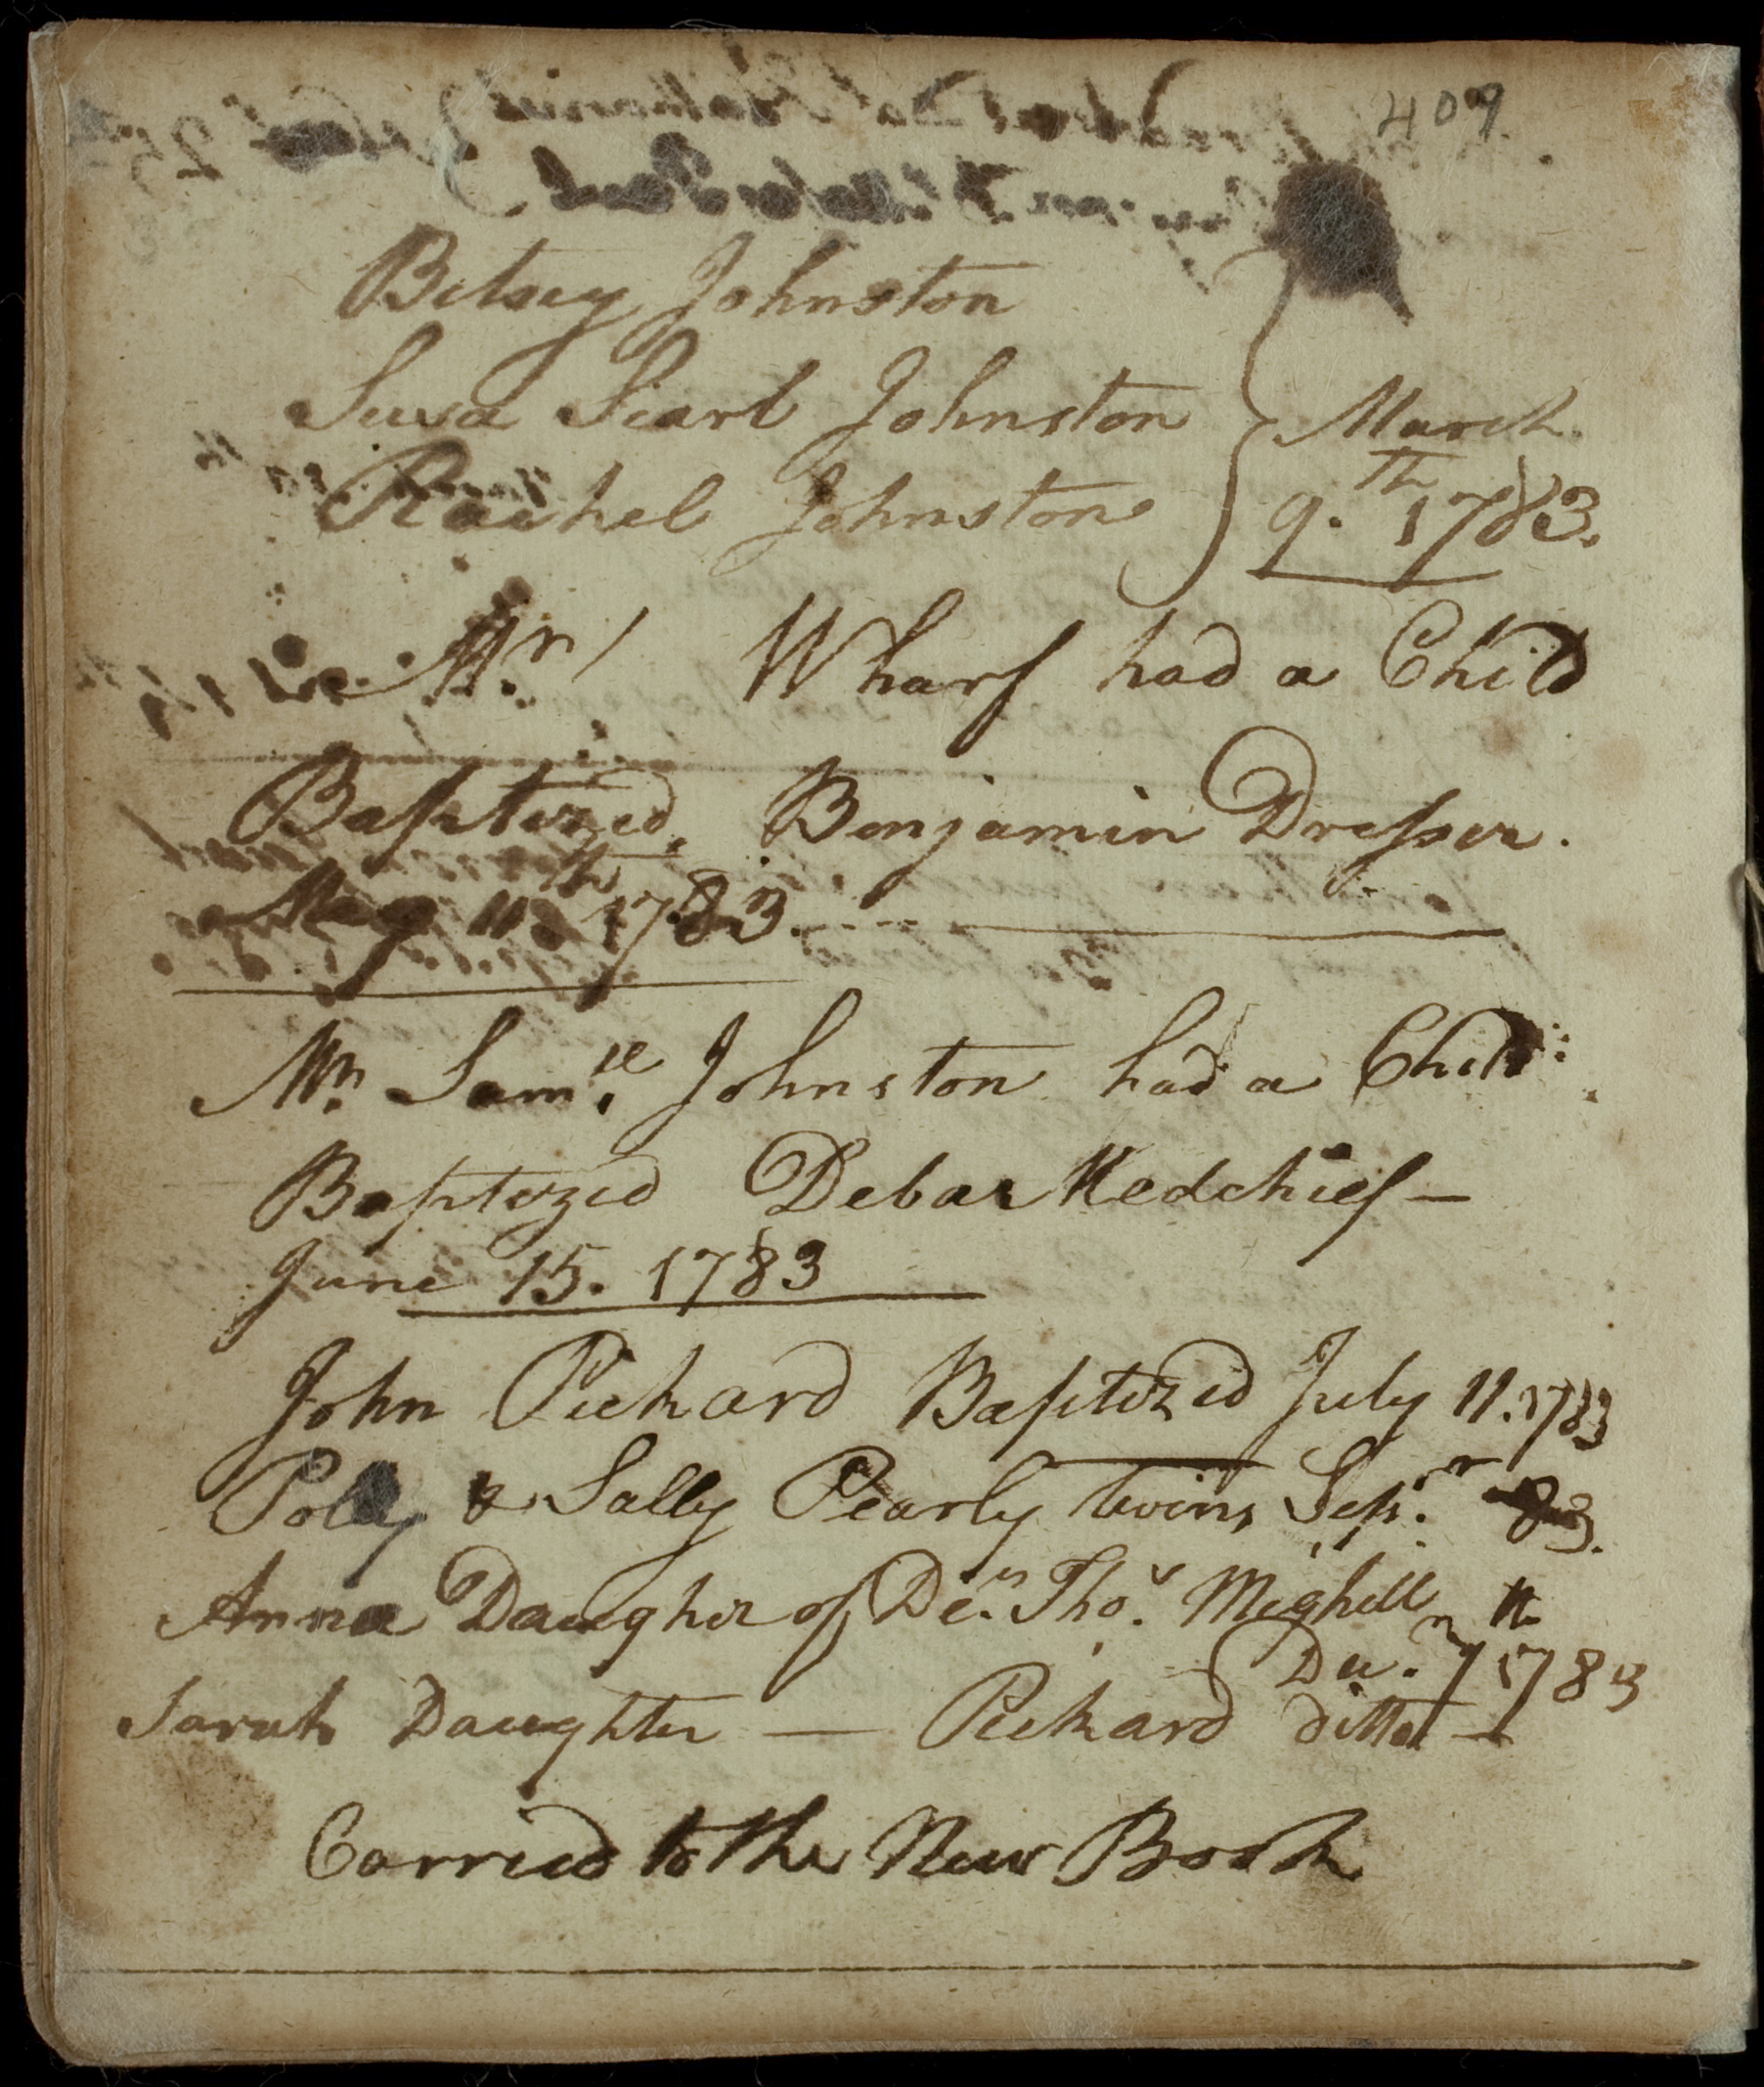 409
Bitsey Johnston
Susa Searl Johnston
Rachel Johnston
March
9.th 1783.
Mr Wharf had a Child
Baptized Benjamin Dresser.
May 11th 1783.
Mr Samll Johnston had a Child
Baptized
June 15. 1783
John Pickard Baptized July 11. 1783
Polly & Sally Pearly twins Sepr 83.
Anna Daughter of Den Thos Mighill
7 1783
Sarah Daughter — Pickard ditto
Carried to the New Book